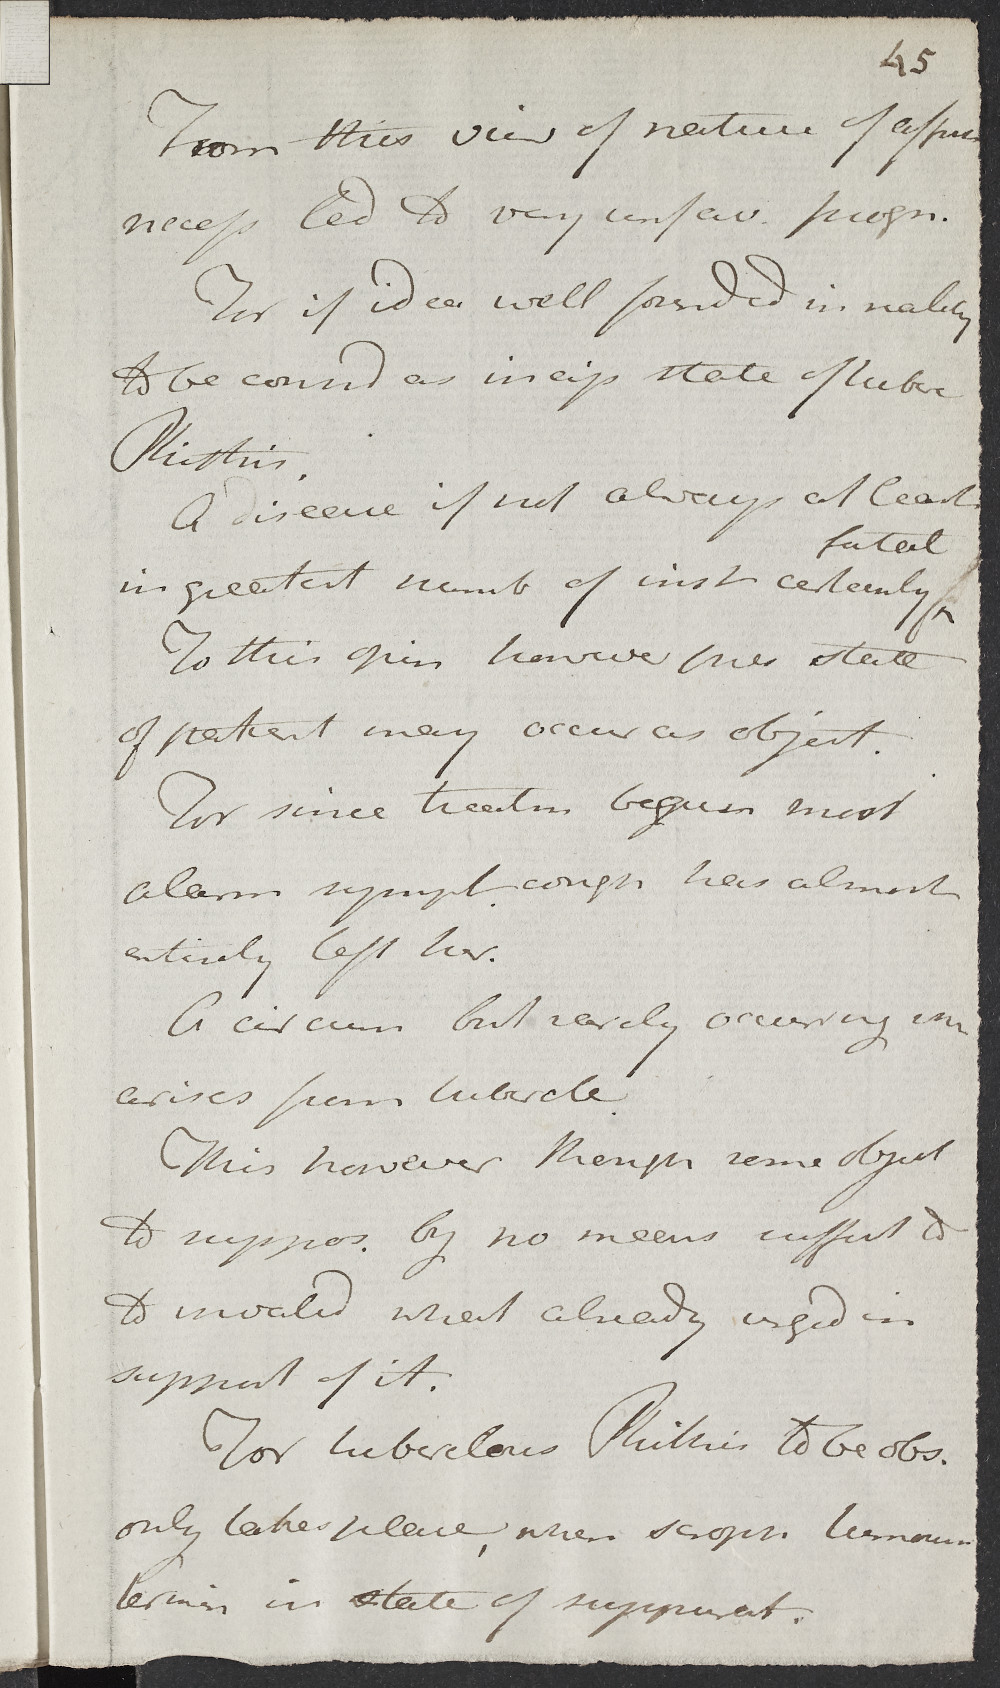 45
From this view of nature of affect
necess led to very unfav. progn.
For if idea well founded in reality
to be consid as incip state of tuberc
Phisthis.
A disease if not always at least
fatal
in greatest numb of inst certainly
To this opin however pres state
of patient may occur as object.
For since treatm begun most
alarm sympt. cough has almost
entirely left her.
A circum but rarely occuring wn
arises from tubercle.
This however though some object
to suppos. by no means suffict to
to invalid what already urged in
support of it.
For tuberclous Phithis to be obs.
only takes place, when scroph tumour
termin in state of suppurat.